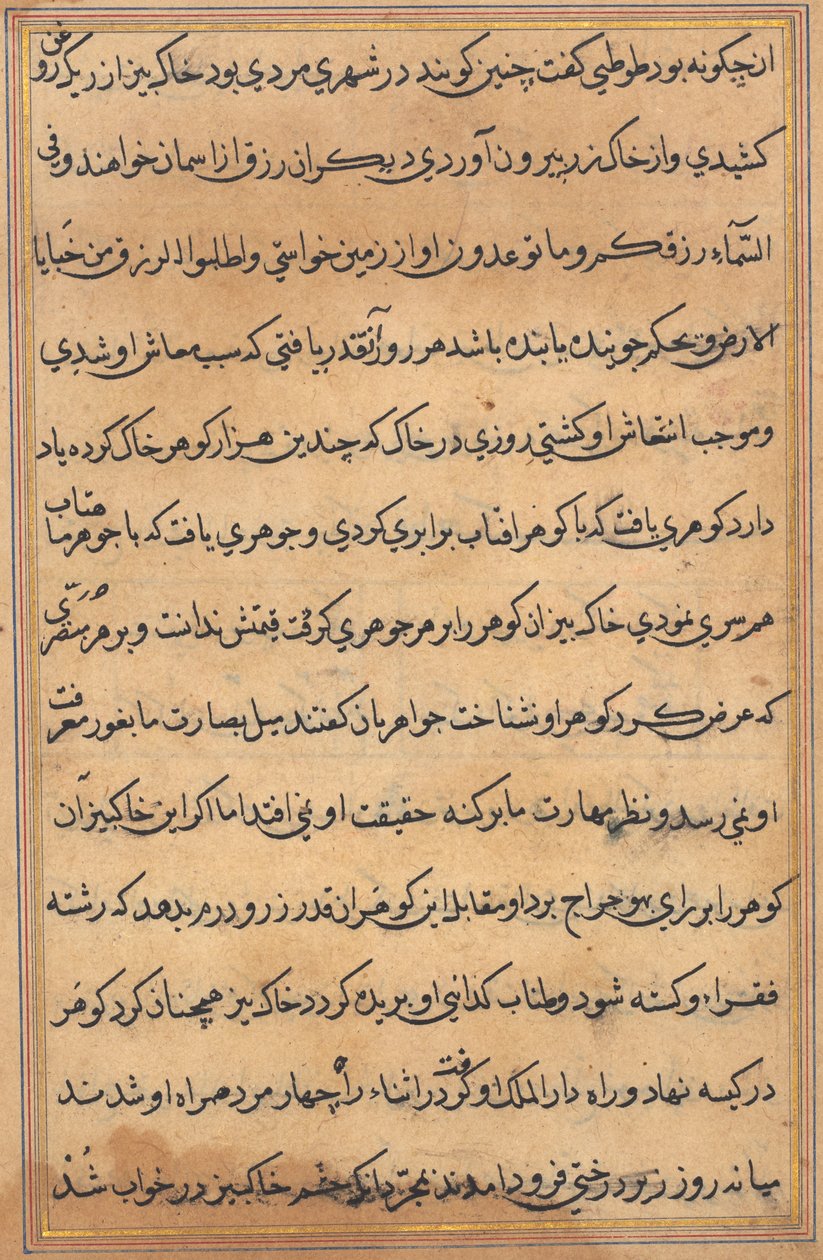 ان چگونه بود طوطی گفت چنین کویند در شهری مردی بود خاک بیز از ریک روغن
کشیدی و از خاک زر بیرون آوردی دیکران رزق از اسمان خواهند و فی
السَّمَآءِ رزقکم و ما توعدون او از زمین خواستی و اطلبوا الرزق من خَبایا
الارض و بحکم جوینده یابنده باشد هر روز آنقدر یافتی که سبب معاش او شدی
و موجب انتعاش او کشتی روزی در خاک که چندین هزار کوهر خاک کرده یاد
دارد کوهری یافت که با کوهر افتاب برابری کردی و جوهری یافت که با جوهر ماهتاب
هم سری نمودی خاک بیز ان کوهر را بر هر جوهری کرفت قیمتش ندانست و بر هر مبصّری
که عرض کرد کوهر او نشناخت جواهریان کفتند میل بصارت ما بغور معرفت
او نمی رسد و نظر مهارت ما بر کنه حقیقت او نمی افتد اما اکر این خاکبیز آن
کوهر را بر رای بهوجراج برد او مقابله این کوهر ان قدر زر و درم بدهد که رشته
فقراء وکسته شود و طناب کدائی او بریده کردد خاک بیز همچنان کرد کوهَر
در کیسه نهاد و راه دار الملک او کرفت در اثناء راه چهار مرد همراه او شدند
میانه روز زیر درختی فرود امدند بمجرّد انکه چشم خاکبیز در خواب شُدْ